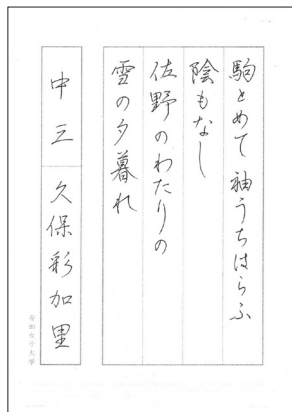 駒とめて 袖うちはらふ
陰もなし
佐野のわたりの
雪の夕暮れ
中三 久保彩加里
安田女子大学